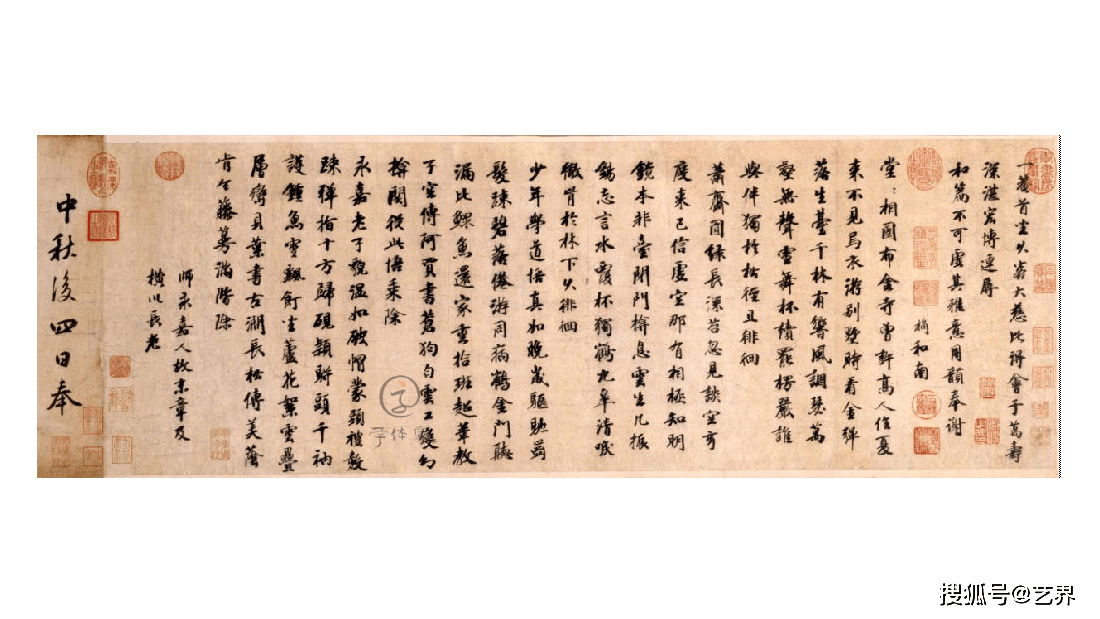 一庵首坐以峇大慈此得會于萬壽
深湛宏博連屏
和篇不可虛其雅意用韻奉謝
楠和南
堂〻相國布金寺曾軒髙人信夏
來不見烏衣游别墅時看金彈
落生臺千林有響風調瑟萬
壑無聲雪舞杯讀罷楞嚴誰
與伴獨於松徑且徘徊
蕭齋閒緑長深苔忽見談空
度來已信虛空那有相極知明
鏡本非臺閉門揜息雲生几振
錫忘言水覆杯獨鶴九皋清唳
徹肯於林下以徘徊
少年學道悟真如晚嵗驅馳
髮踈碧落倦游同病鶴金門聽
漏比鰥魚還家重拾班超筆教
子空傳阿買書蒼狗白雲工變幻
揜關從此悟乗除
永嘉老子貌温如破帽蒙頭禮數
踈彈指十方歸硯穎時頭千衲
護鍾魚雪飄飣坐蘆花絮雲疊
層巒貝葉書古澗長松傳美蔭
肯令藤蔓滿階除
師永嘉人故末章及
樵以長老
中秋後四日奉
字体
搜狐号@艺界